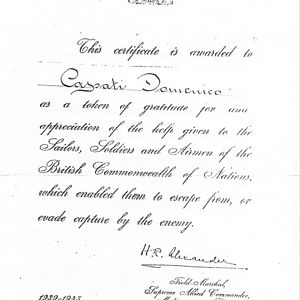 This certificate is awarded to
Caspati Domenico
as a token of gratitude for and
appreciation of the help given to the
Sailors, Soldiers and Airmen of the
British Commonwealth of Nations,
which enabled them to escape from, or
evade capture by the enemy.
H.R. Alexander
Field-Marshal,
Supreme Allied Commander,
1939-1945